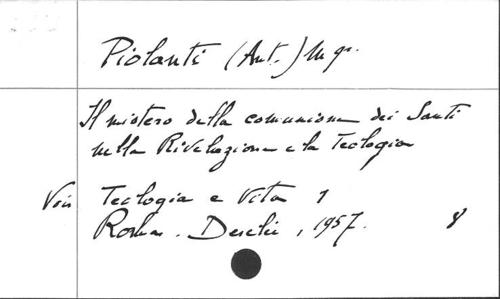 Piolanti (Ant.) Mgr.
Il mistero della comunione dei Santi
nella Rivelazione e la Teologia
Voir Teologia e Vita 1
Roma. Desclée, 1957. 8